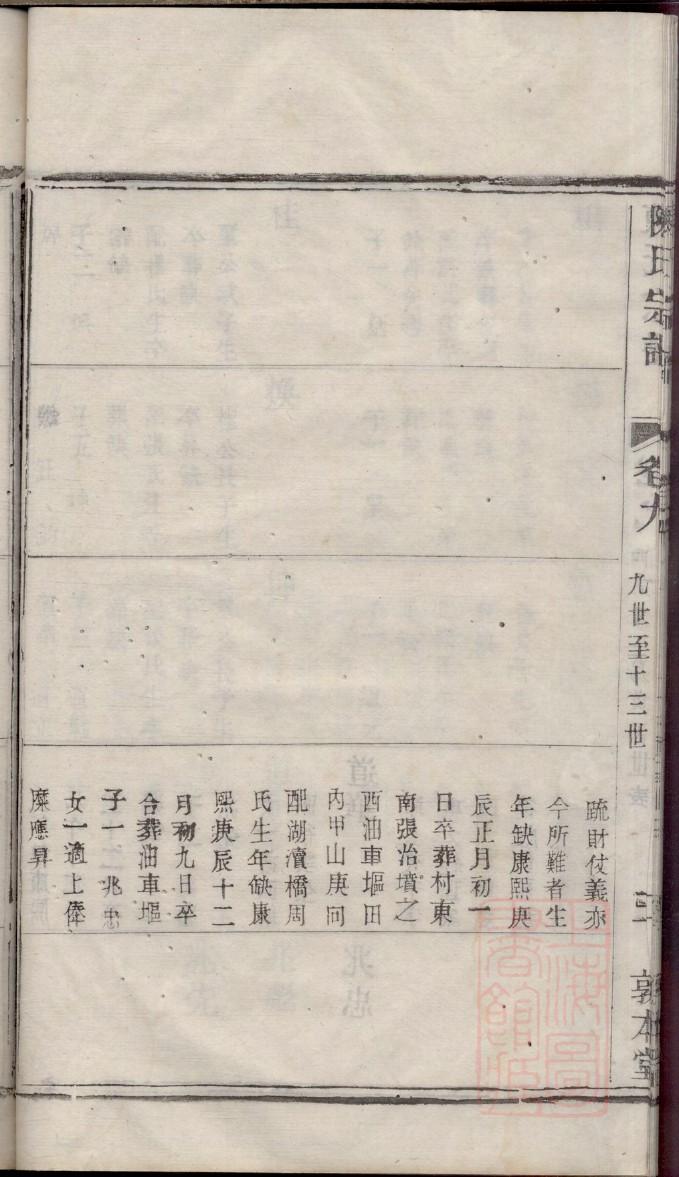 陳氏宗譜
卷九
九世至十三世
敦本堂
疏財仗義亦
今所難者生
年缺康熙庚
辰正月初一
日卒葬村東
南張治墳之
西油車塸田
內甲山庚向
配湖瀆橋周
氏生年缺康
熙庚辰十二
月初九日卒
合葬油車塸
子一 兆忠
女一適上俸
糜應昇
上海圖書館藏